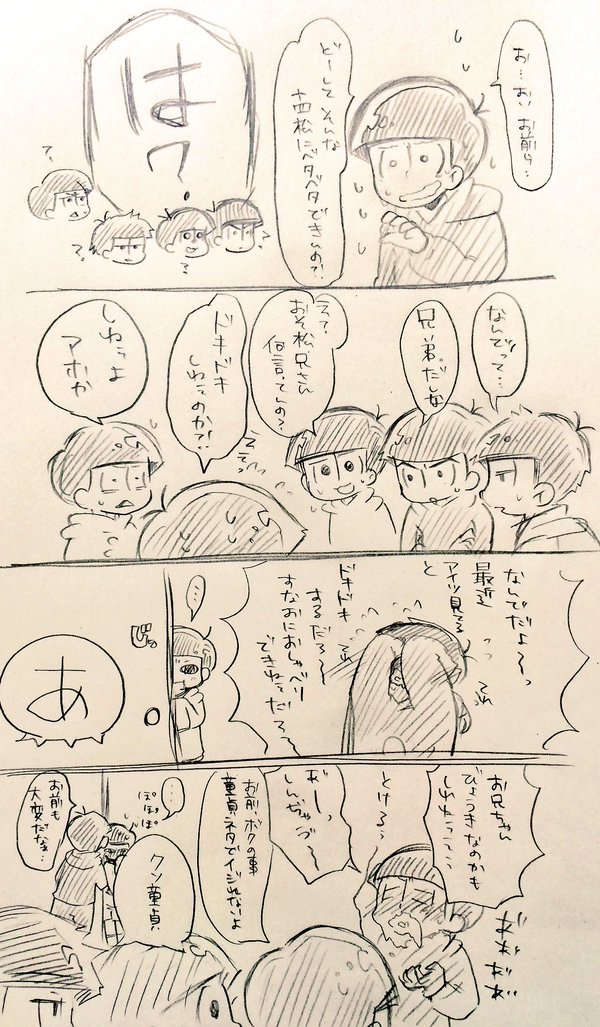 お…おい お前ら…
どーして そんな
十四松にベタベタできんの?!
は?
なんでって…
兄弟だしな
え?
おそ松兄さん
何言ってんの?
ドキドキ
しねえのか?!
しねぇよ
アホか
なんでだよ〜っ
最近
アイツ見てる
と
ドキドキ
するだろ〜
すなおにおしゃべり
できねえだろ〜
…
じっ
あ
お兄ちゃん
びょうきなのかも
しれねぇ…
とける〜
あ〜っ
しんぢゃう〜
お前、ボクの事
童貞ネタでイジれないよ
クソ童貞
…
ぽぽぽ
お前も
大変だな…